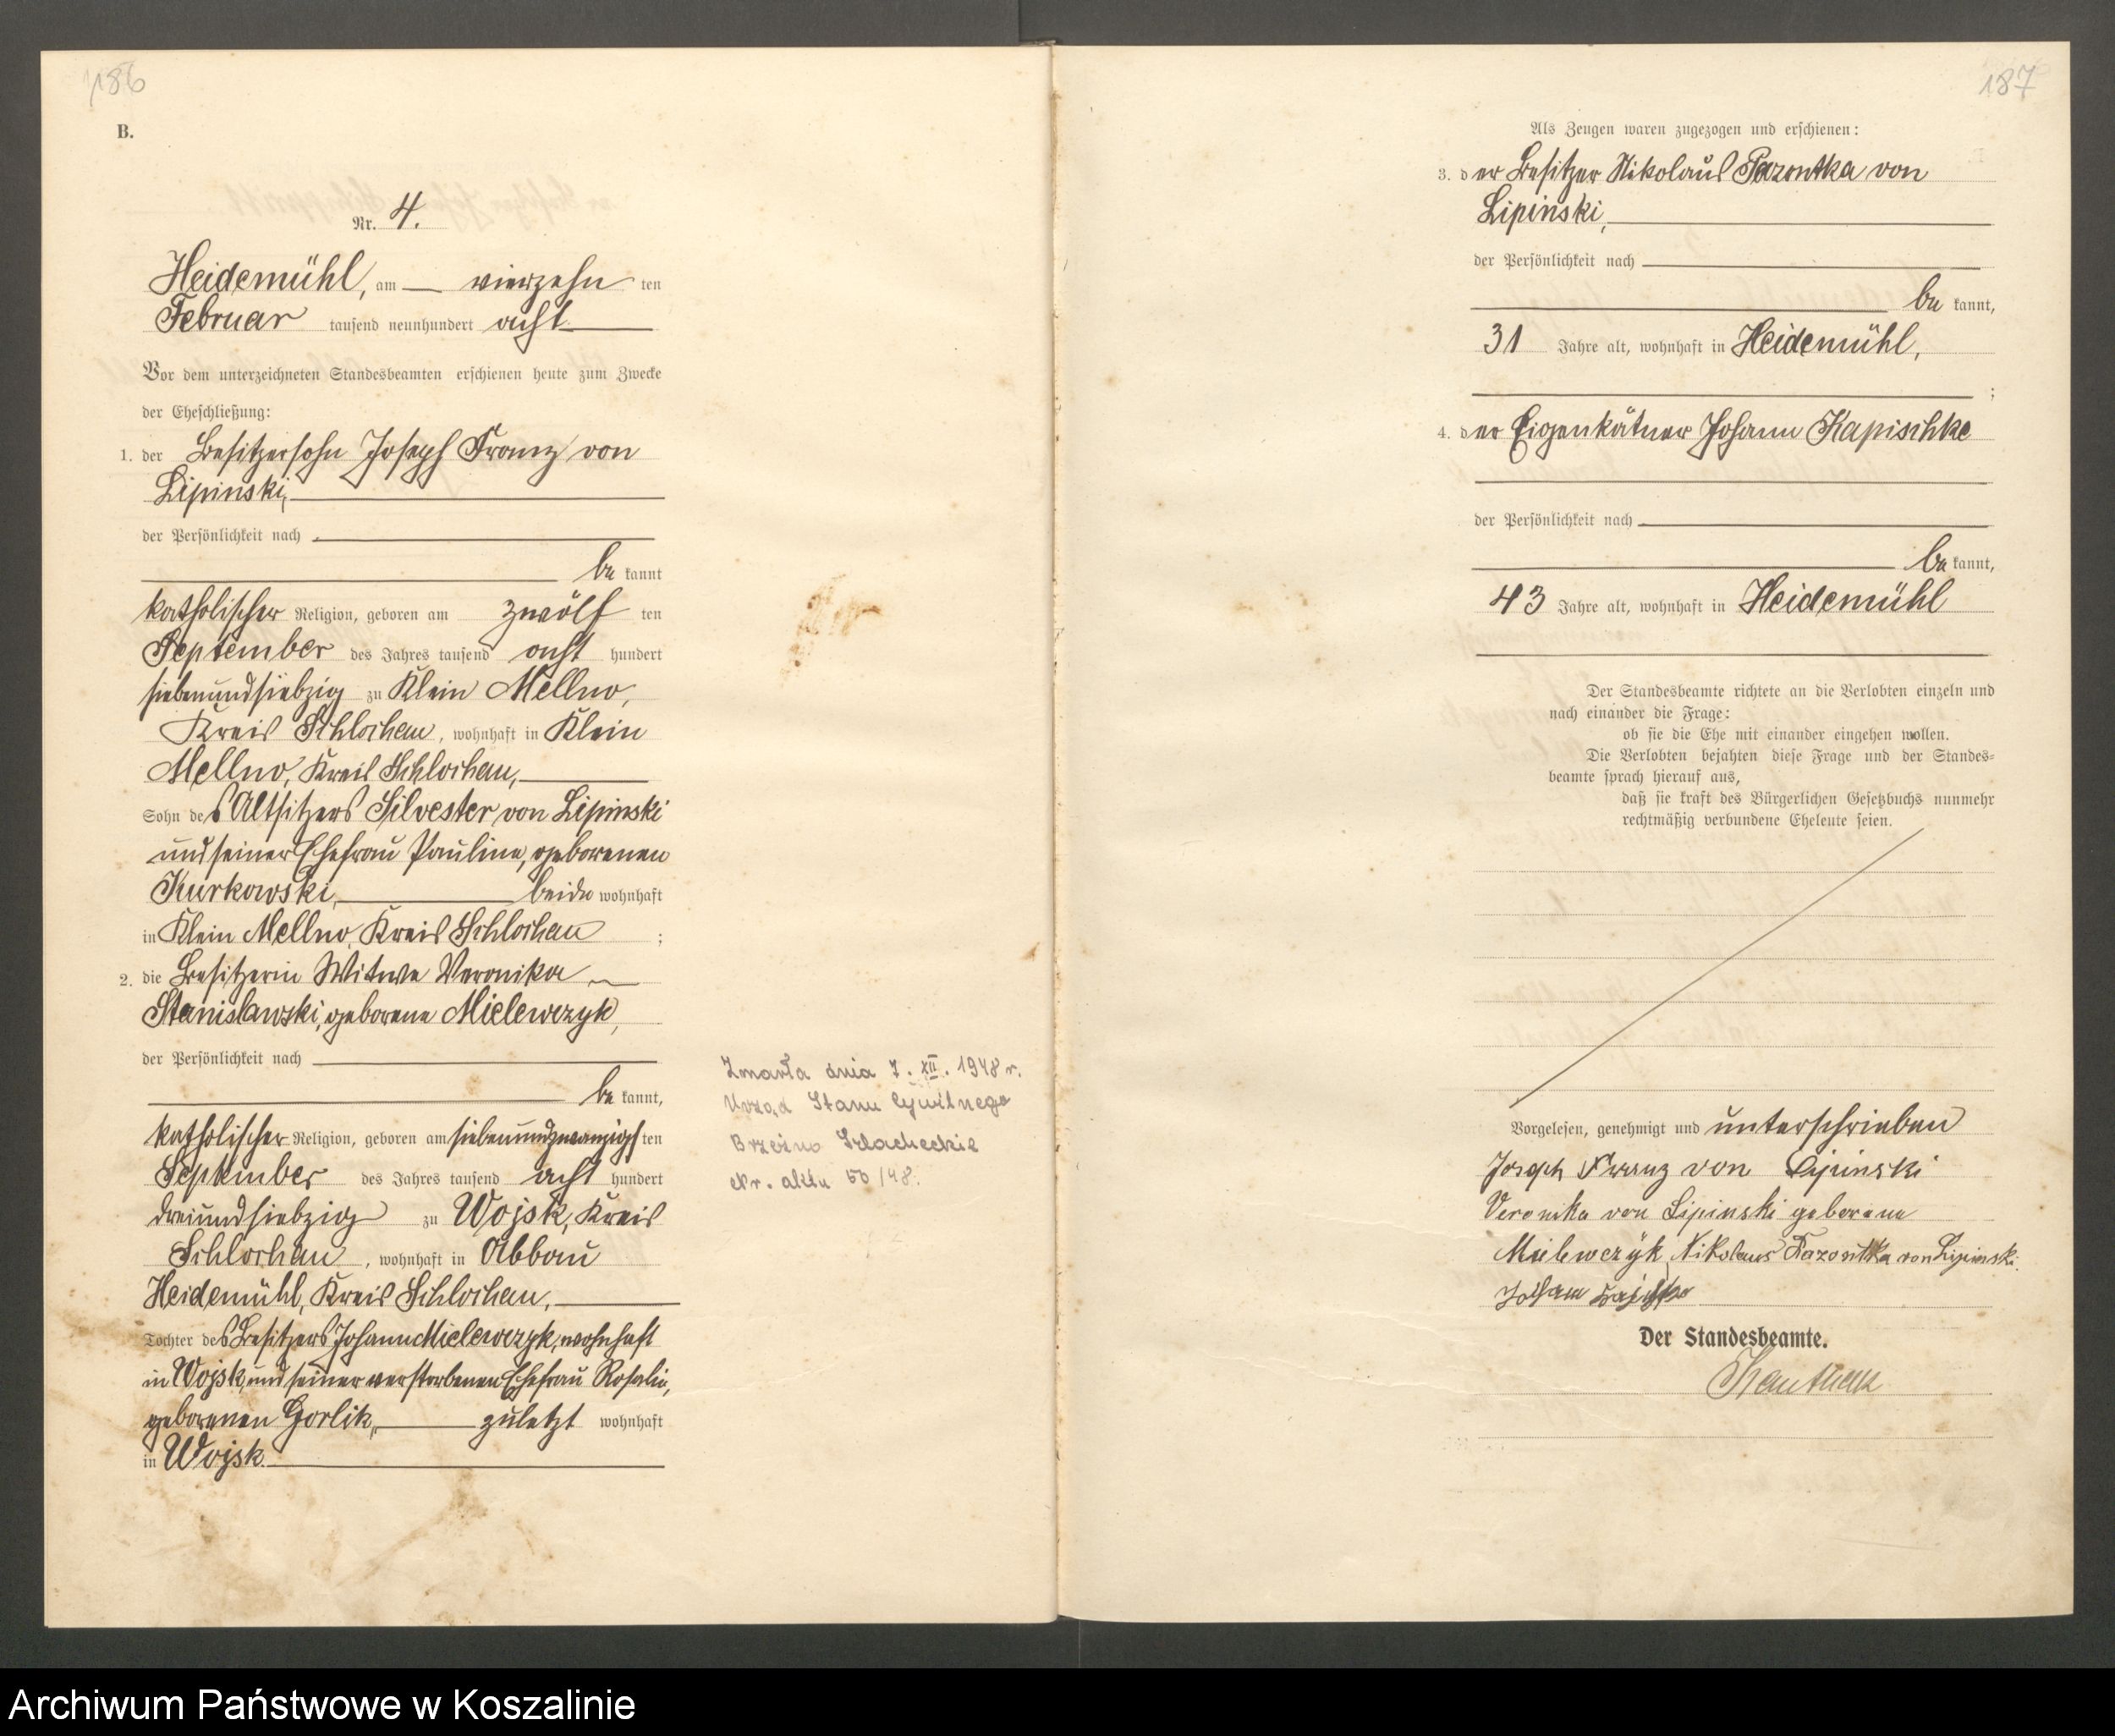 186
B.
Nr. 4.
Heidemühl, am vierzehn ten
Februar tausend neunhundert acht
Vor dem unterzeichneten Standesbeamten erschienen heute zum Zwecke
der Eheschließung:
1. der Besitzersohn Joseph Franz von
Lipinski,
der Persönlichkeit nach
be kannt
katholischer Religion, geboren am zwölf ten
September des Jahres tausend acht hundert
siebenundsiebzig zu Klein Mellno,
Kreis Schlochau, wohnhaft in Klein
Mellno, Kreis Schlochau,
Sohn des Altsitzers Silvester von Lipinski
und seiner Ehefrau Pauline, geborenen
Kurkowski, beide wohnhaft
in Klein Mellno, Kreis Schlochau ;
2. die Besitzerin Witwe Veronika
Stanislawski, geborene Mielewczyk,
der Persönlichkeit nach
be kannt,
katholischer Religion, geboren am siebenundzwanzigsten
September des Jahres tausend acht hundert
dreiundsiebzig zu Wojsk, Kreis
Schlochau, wohnhaft in Abbau
Heidemühl, Kreis Schlochau,
Tochter des Besitzers Johann Mielewczyk, wohnhaft
in Wojsk, und seiner verstorbenen Ehefrau Rosalie,
geborenen Gorlik, zuletzt wohnhaft
in Wojsk.
Zmarła dnia 7. XII. 1948 r.
Urząd Stanu Cywilnego
Brzeźno Szlacheckie
Nr. aktu 50/48.
187
Als Zeugen waren zugezogen und erschienen:
3. der Besitzer Nikolaus von
Lipinski,
der Persönlichkeit nach
be kannt,
31 Jahre alt, wohnhaft in Heidemühl,
;
4. der Eigenkätner Johann Kapischke
der Persönlichkeit nach
be kannt,
43 Jahre alt, wohnhaft in Heidemühl
Der Standesbeamte richtete an die Verlobten einzeln und
nach einander die Frage:
ob sie die Ehe mit einander eingehen wollen.
Die Verlobten bejahten diese Frage und der Standes=
beamte sprach hierauf aus,
daß sie kraft des Bürgerlichen Gesetzbuchs nunmehr
rechtmäßig verbundene Eheleute seien.
Vorgelesen, genehmigt und unterschrieben
Joseph Franz von Lipinski
Veronika von Lipinski geborene
Mielewczyk, Nikolaus von Lipinski.
Johann
Der Standesbeamte.
Archiwum Państwowe w Koszalinie